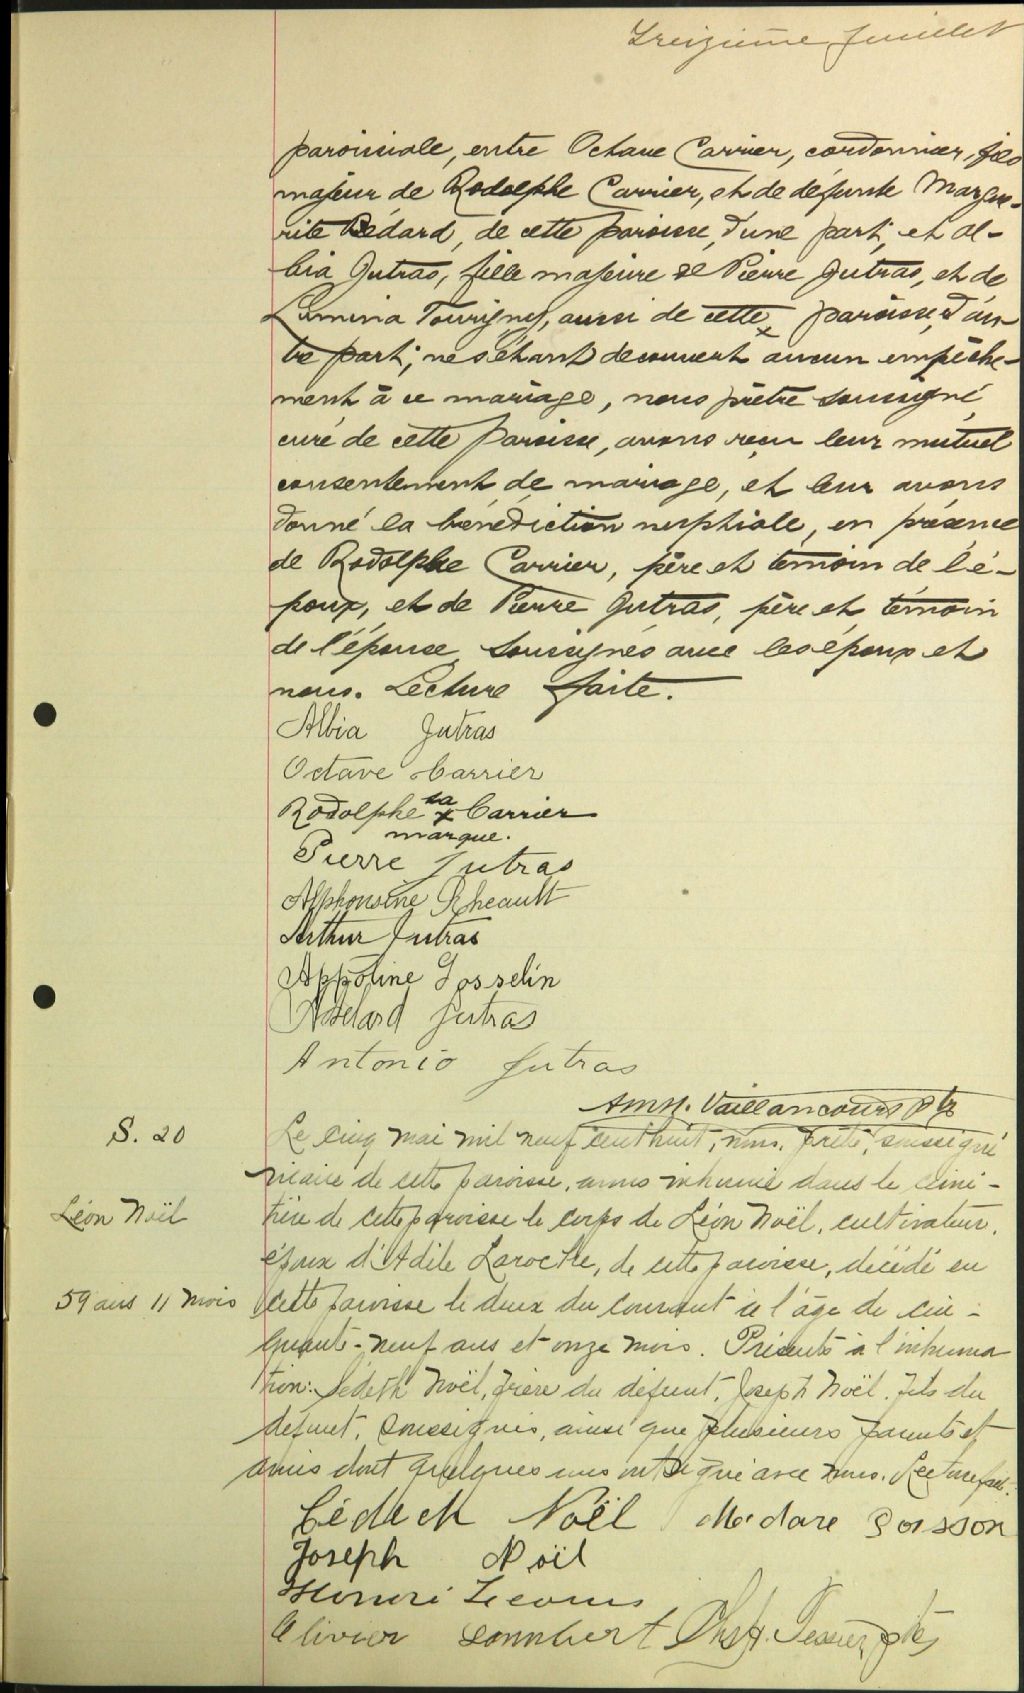 Treizième feuillet
paroissiale, entre Octave Carrier, cordonnier, fils
majeur de Rodolphe Carrier, et de défunte Margue-
rite Bédard, de cette paroisse, d'une part; et Al-
bia Jutras, fille majeure de Pierre Jutras, et de
Lumina Tourigny, aussi de cette paroisse, d'au-
tre part; ne s'étant découvert aucun empêche-
ment à ce mariage, nous prêtre soussigné,
curé de cette paroisse, avons reçu leur mutuel
consentement de mariage, et leur avons
donné la bénédiction nuptiale, en présence
de Rodolphe Carrier, père et témoin de l'é-
poux, et de Pierre Jutras, père et témoin
de l'épouse, soussignés avec les époux et
nous. Lecture faite.
Albia Jutras
Octave Carrier
Rodolphe sa x Carrier
marque.
Pierre Jutras
Alphonsine Rheault
Arthur Jutras
Appoline Gosselin
Adélard Jutras
Antonio Jutras
Vaillancourt Ptr
S. 20
Léon Noël
59 ans 11 mois
Le cinq mai mil neuf cent huit, nous, prêtre, soussigné
vicaire de cette paroisse, avons inhumé dans le cime-
tière de cette paroisse le corps de Léon Noël, cultivateur,
époux d'Adèle Laroche, de cette paroisse, décédé en
cette paroisse le deux du courant à l'âge de cin-
quante-neuf ans et onze mois. Présents à l'inhuma
tion: Noël, frère du défunt, Joseph Noël, fils du
défunt, soussignés, ainsi que plusieurs parents et
amis dont quelques uns ont signé avec nous. Lecture faite.
Noël Poisson
Joseph Noël
Olivier Lambert Tessier, ptre